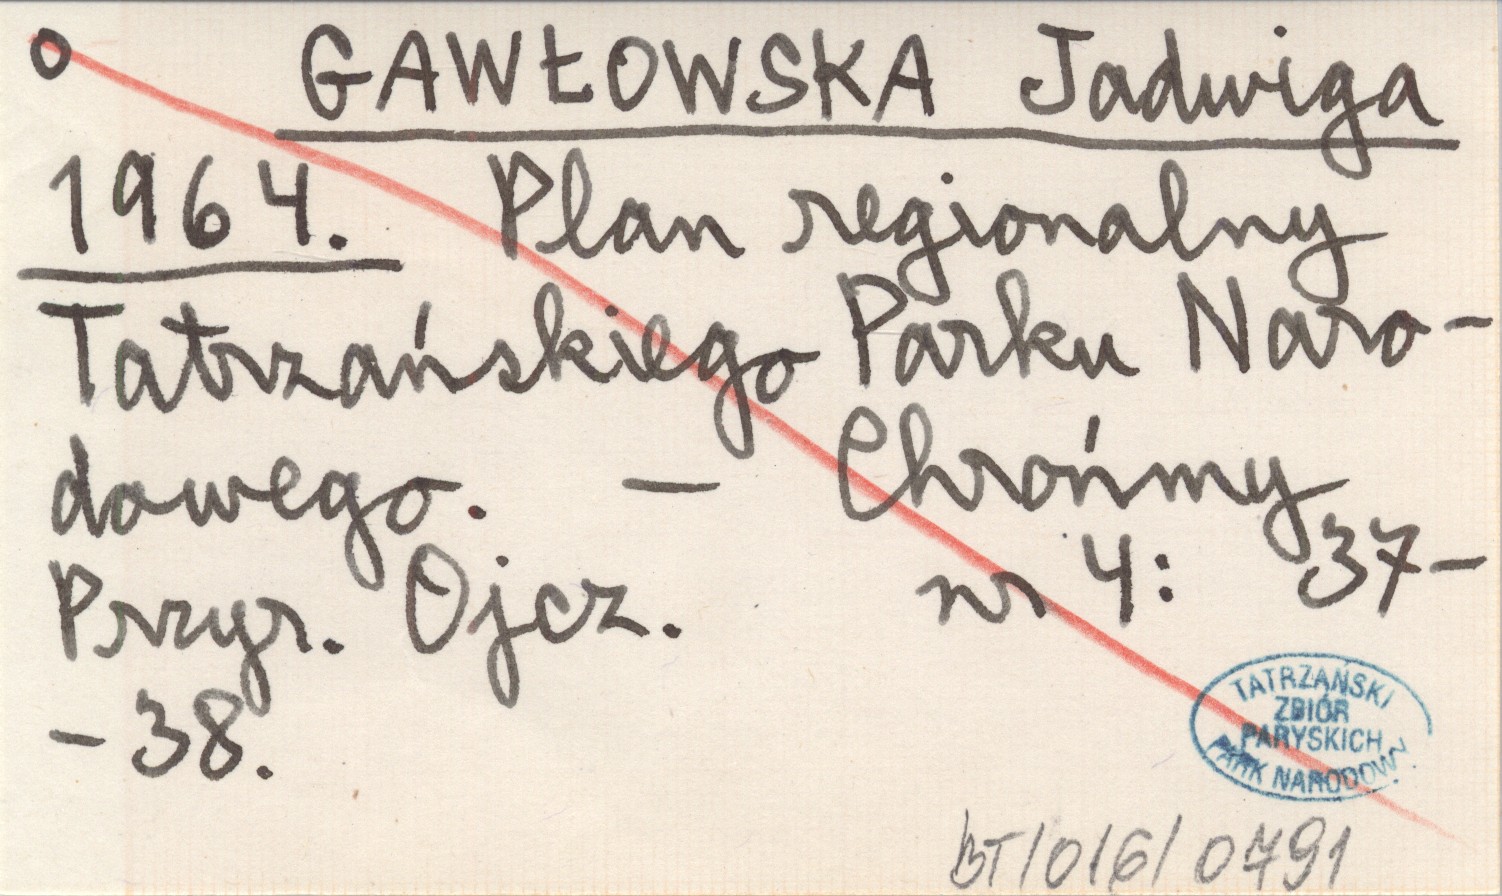 o GAWŁOWSKA Jadwiga
1964. Plan regionalny
Tatrzańskiego Parku Naro-
dowego. — Chrońmy
Przyr. Ojcz. nr 4: 37-
-38.
TATRZAŃSKI
ZBIÓR
PARYSKICH
PARK NARODOWY
BT/016/0791